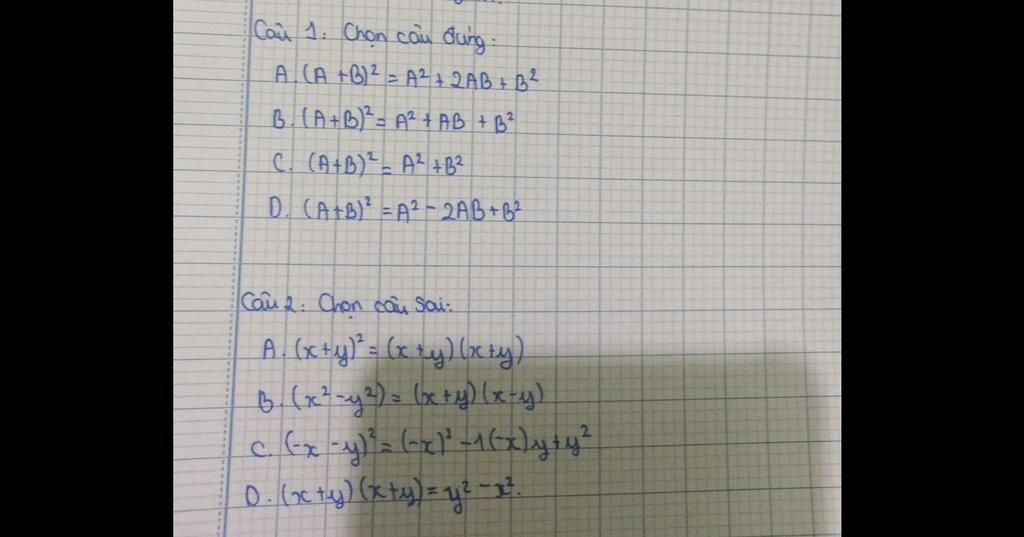 Câu 1. Chọn câu đúng:
A. (A + B)² = A² + 2AB + B²
B. (A+B)² = A² + AB + B²
C. (A+B)² = A² + B²
D. (A+B)² = A² - 2AB + B²
Câu 2. Chọn câu sai:
A. (x+y)² = (x+y)(x+y)
B. (x² - y²) = (x+y)(x-y)
C. (-x - y)² = (-x)² - 1(-x)y + y²
D. (x+y)(x+y) = y² - x².